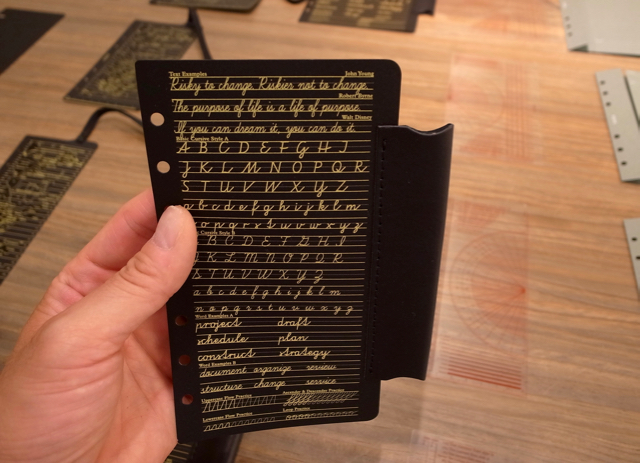 Text Examples John Young
Risky to change, Riskies not to change.
Robert Byrne
The purpose of life is a life of purpose.
Walt Disney
If you can dream it, you can do it.
Basic Cursive Style A
A B C D E F G H I
J K L M N O P Q R
S T U V W X Y Z
a b c d e f g h i j k l m
n o p q r s t u v w x y z
Cursive Style B
B C D E F G H I
J K L M N O P Q R
S T U V W X Y Z
a b c d e f g h i j k l m
n o p q r s t u v w x y z
Word Examples A
project draft
schedule plan
construct strategy
Word Examples B
document organize review
structure change service
Uppercase Flow Practice Ascender & Descender Practice
Lowercase Flow Practice Loop Practice